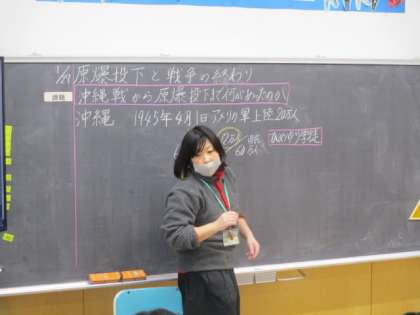 1/19 原爆投下と戦争の終わり
課題
沖縄戦から原爆投下まで何があったのか
沖縄 1945年4月1日アメリカ軍上陸 20万人
12万人
ひめゆり学徒